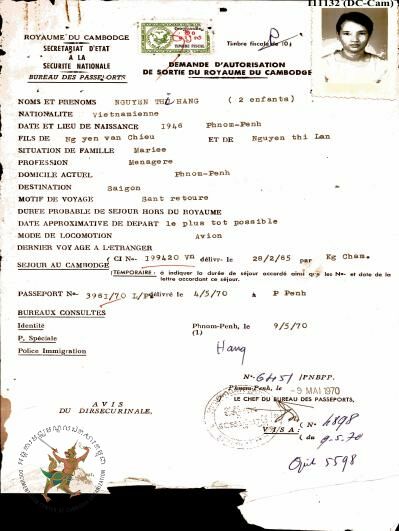 111132 (DC-Cam)
ROYAUME DU CAMBODGE
SECRETARIAT D'ETAT
A LA
SECURITE NATIONALE
BUREAU DES PASSEPORTS
TIMBRE FISCAL
Timbre fiscale de 10$
DEMANDE D'AUTORISATION
DE SORTIE DU ROYAUME DU CAMBODGE
NOMS ET PRENOMS NGUYEN THI HANG ( 2 enfants)
NATIONALITE Vietnamienne
DATE ET LIEU DE NAISSANCE 1946 Phnom-Penh
FILS DE Ng yen van Chieu ET DE Nguyen thi Lan
SITUATION DE FAMILLE Mariee
PROFESSION Menagere
DOMICILE ACTUEL Phnom-Penh
DESTINATION Saigon
MOTIF DE VOYAGE Sant retoure
DUREE PROBABLE DE SEJOUR HORS DU ROYAUME
DATE APPROXIMATIVE DE DEPART le plus tot possible
MODE DE LOCOMOTION Avion
DERNIER VOYAGE A L'ETRANGER
SEJOUR AU CAMBODGE ( CI No- 199420 vn délivré- le 28/2/65 par Kg Cham.
(TEMPORAIRE : à indiquer la durée de séjour accordé ainsi que les No- et date de la
lettre accordant ce séjour.
PASSEPORT No- 3981/70 délivré le 4/5/70 à P Penh
BUREAUX CONSULTES
Identité Phnom-Penh, le 9/5/70
P, Spéciale (1)
Police Immigration
Hang
No- 6451 /PNBPP.
Phnom-Penh, le - 9 MAI 1970
LE CHEF DU BUREAU DES PASSEPORTS,
AVIS
DU DIRSECURINALE,
VISA: ( No 4898
( du 9.5.70
5598